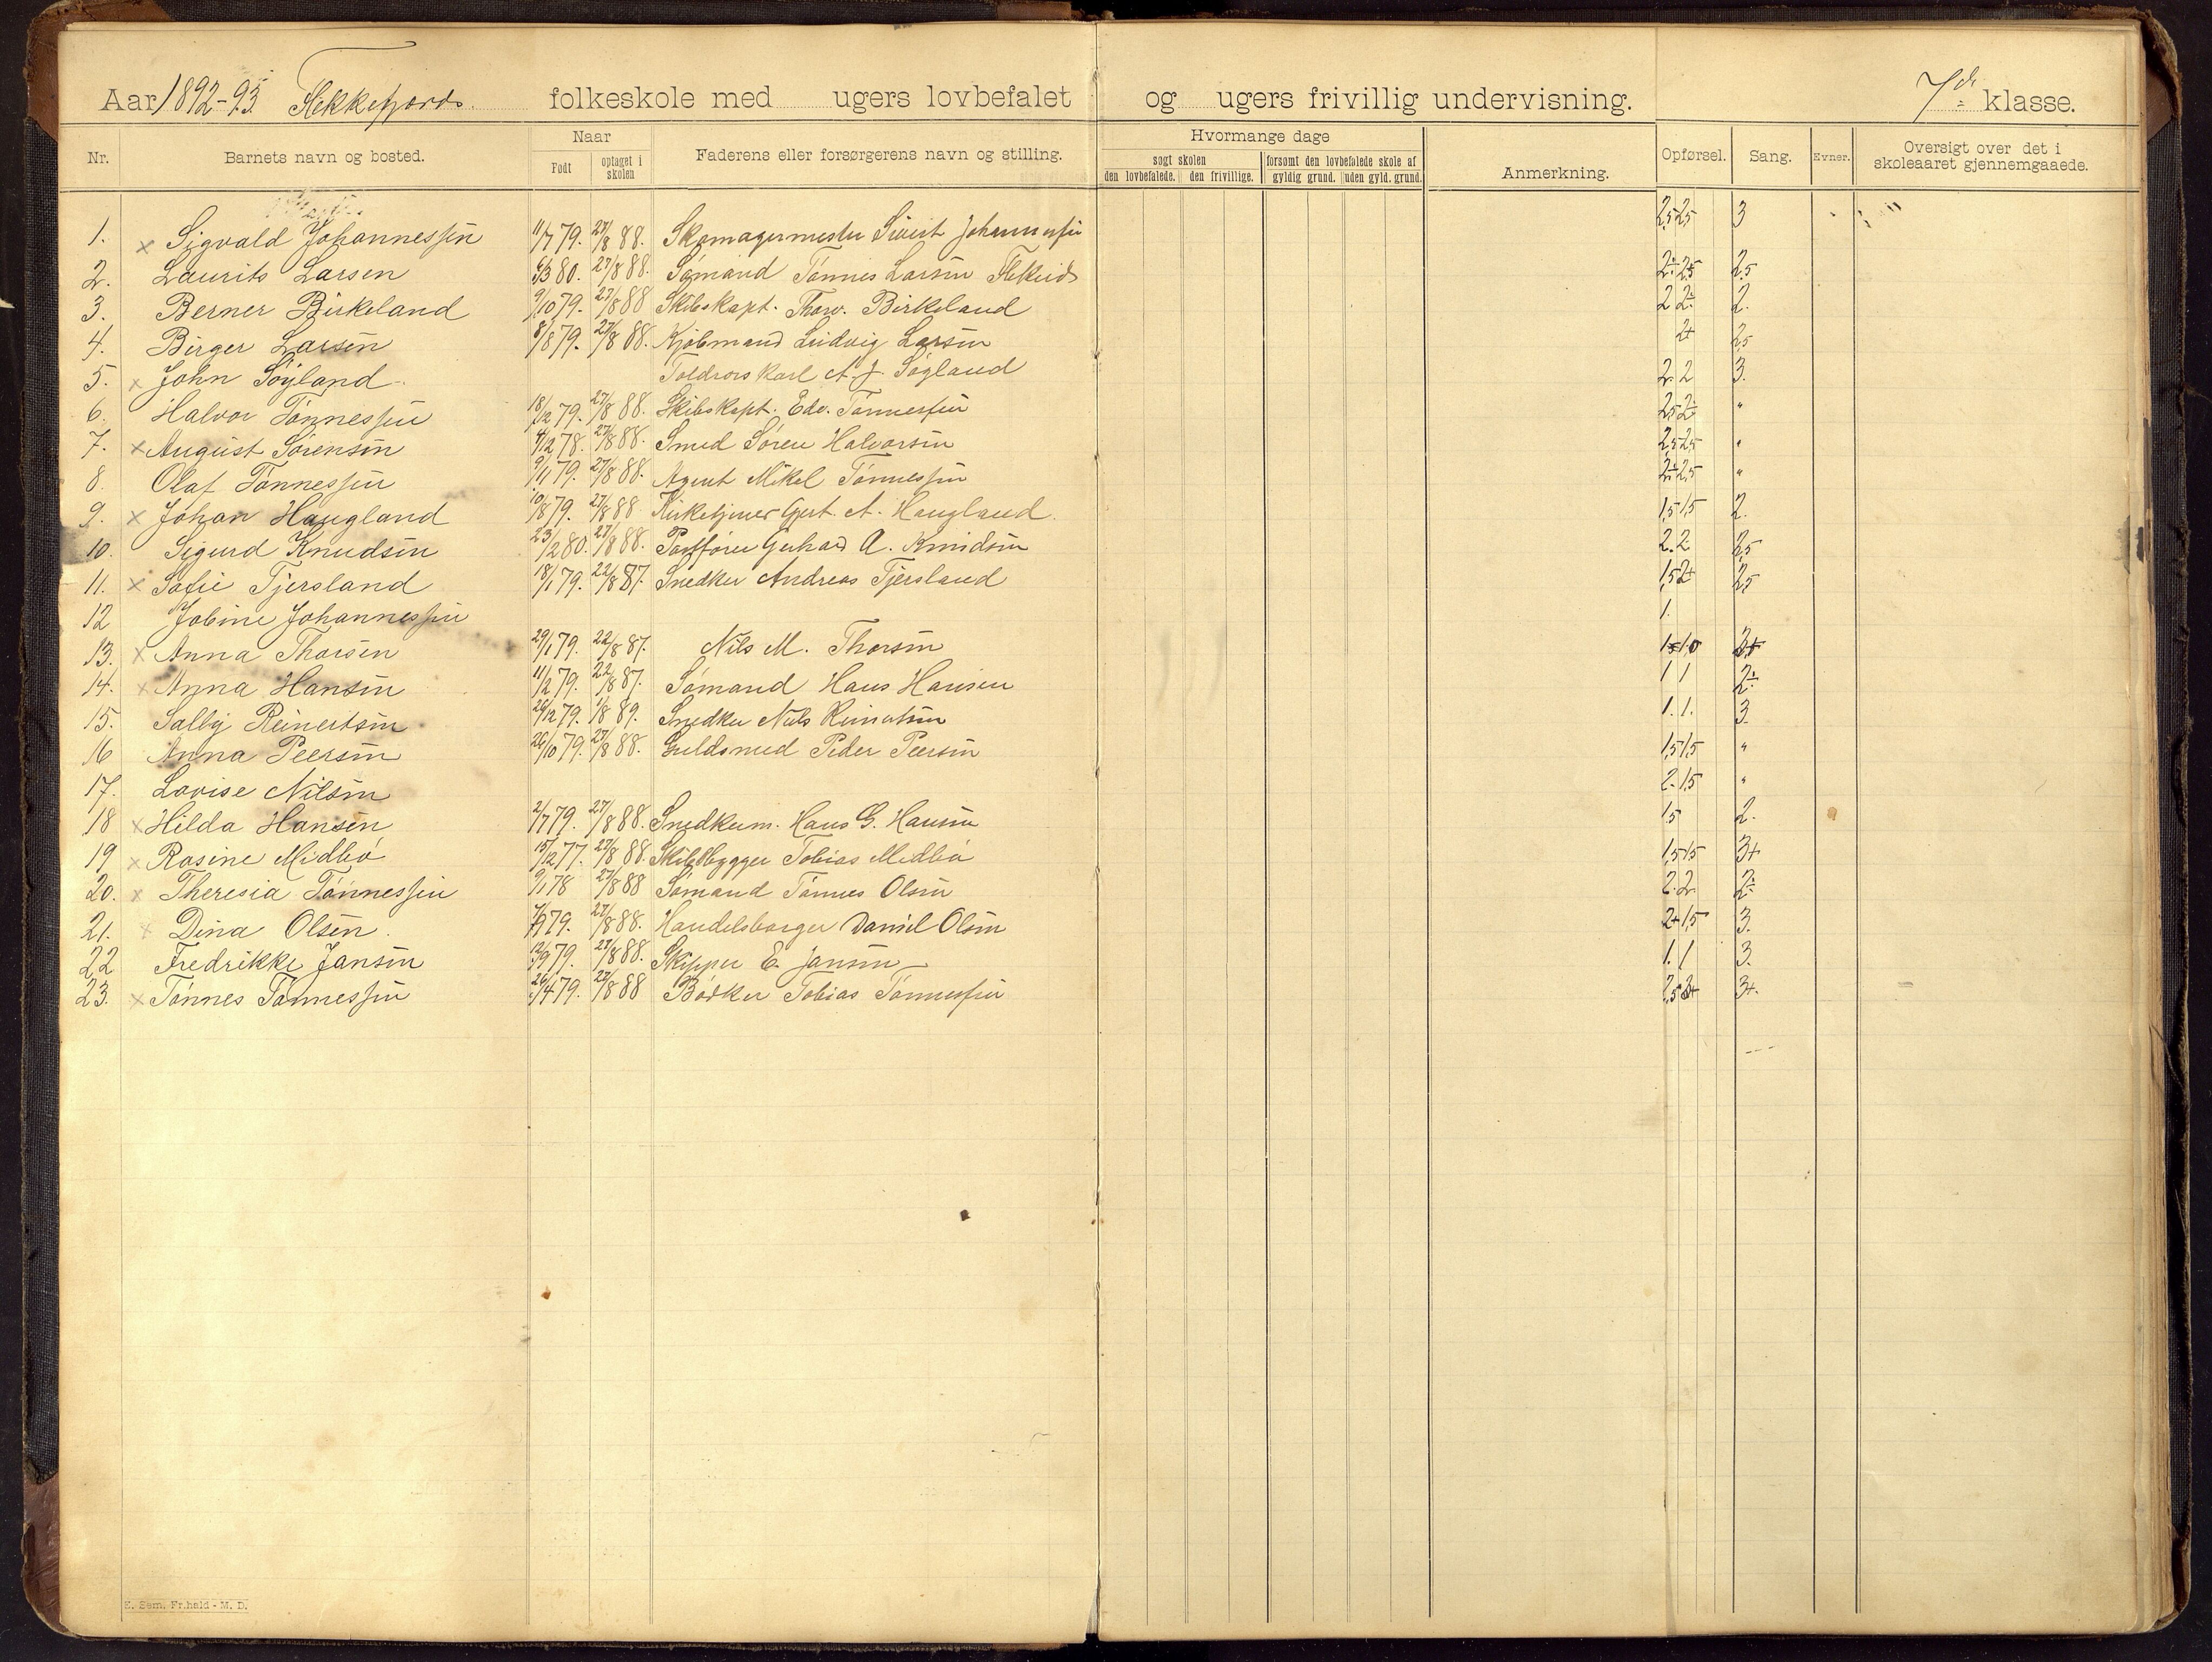 Aar 1892-93 Flekkefjords folkeskole med ugers lovbefalet og ugers frivillig undervisning. 7de klasse.
Nr. Barnets navn og bosted. Naar Født optaget i skolen Faderens eller forsørgerens navn og stilling. Hvormange dage søgt skolen den lovbefalede. den frivillige. forsømt den lovbefalede skole af gyldig grund. uden gyld. grund. Anmerkning. Opførsel. Sang. Evner. Oversigt over det i skoleaaret gjennemgaaede.
1. × Sigvald Johannessen 11/7 79. 27/8 88. Skomagermester Sivert Johannessen 2,5 2,5 3
2. Laurits Larsen 80. 27/8 88. Sømand Tønnes Larsen 2÷ 2,5 2,5
3. Berner Birkeland 9/10 79. 27/8 88 Skibskapt. Thorv. Birkeland 2 2÷ 2.
4. Birger Larsen 8/8 79. 27/8 88. Kjøbmand Ludvig Larsen 2+ 2,5
5. × John Søyland Toldrorskarl A. J. Søyland 2. 2 3.
6. Halvor Tønnessen 18/12 79. 27/8 88. Skibskapt. Edv. Tønnessen 2,5 2÷ "
7. × August Sørensen 4/12 78. 27/8 88. Smed Søren Halvorsen 2,5 2,5 "
8. Olaf Tønnessen 9/1 79. 27/8 88. Agent Mikel Tønnessen 2÷ 2,5 "
9. × Johan Haugland 10/8 79. 27/8 88. Kirketjener Gert. A. Haugland. 1,5 1,5 2.
10. Sigurd Knudsen 23/2 80. 27/8 88. Postfører Gerhard A. Knudsen 2. 2 2,5
11. × Sofie Tjersland 18/1 79. 22/8 87. Snedker Andreas Tjersland 1,5 2+ 2,5
12 Jobine Johannessen 1.
13. × Anna Thorsen 29/1 79. 22/8 87. Nils M. Thorsen 1,5 1,0 3+
14. × Anna Hansen 11/2 79. 22/8 87. Sømand Hans Hansen 1 1 2÷
15. Salby Reinertsen 26/12 79. 1/8 89. Snedker Nils Reinertsen 1. 1. 3.
16 Anna Peersen 26/10 79. 27/8 88. Guldsmed Peder Peersen 1,5 1,5 "
17. Lovise Nilsen 2. 1,5 "
18 × Hilda Hansen 2/7 79. 27/8 88. Snedkerm. Hans G. Hansen 1,5 2.
19 × Rosine Midbø 15/12 77. 27/8 88. Skibsbygger Tobias Midbø 1,5 1,5 3+
20. × Theresia Tønnessen 9/1 78 27/8 88 Sømand Tønnes Olsen 2. 2. 2÷
21. × Dina Olsen. 7/9 79. 27/8 88. Handelsborger Daniel Olsen 2+ 1,5 3.
22 Fredrikke Jansen 12/9 79. 27/8 88. Skipper E. Jansen 1. 1 3.
23. × Tønnes Tønnessen 26/4 79. 27/8 88 Bødker Tobias Tønnessen 2,5 3+ 3+.
E. Sem, Fr.hald - M. D.